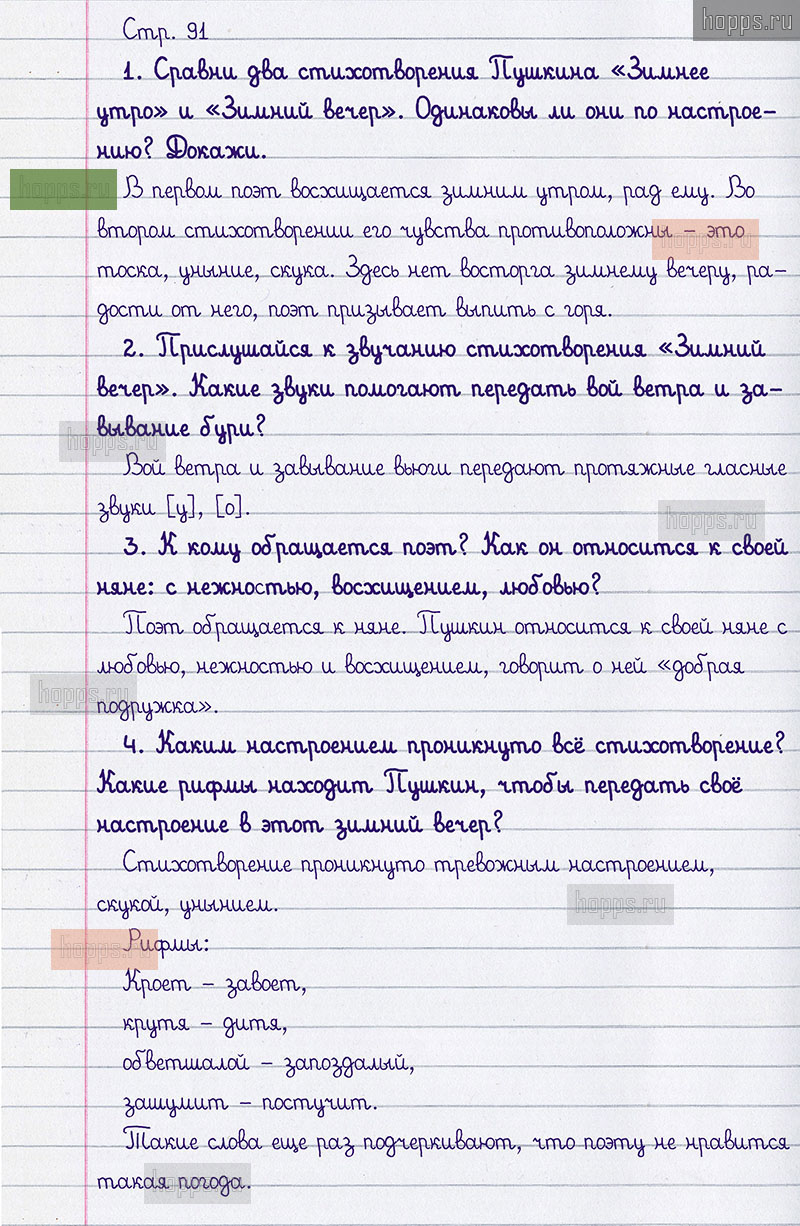 hopps.ru
Стр. 91
1. Сравни два стихотворения Пушкина «Зимнее
утро» и «Зимний вечер». Одинаковы ли они по настрое-
нию? Докажи.
hopps.ru
В первом поэт восхищается зимним утром, рад ему. Во
втором стихотворении его чувства противоположны – это
hopps.ru
тоска, уныние, скука. Здесь нет восторга зимнему вечеру, ра-
дости от него, поэт призывает выпить с горя.
2. Прислушайся к звучанию стихотворения «Зимний
вечер». Какие звуки помогают передать вой ветра и за-
вывание бури?
hopps.ru
Вой ветра и завывание вьюги передают протяжные гласные
звуки [у], [о].
hopps.ru
3. К кому обращается поэт? Как он относится к своей
няне: с нежностью, восхищением, любовью?
Поэт обращается к няне. Пушкин относится к своей няне с
любовью, нежностью и восхищением, говорит о ней «добрая
hopps.ru
подружка».
4. Каким настроением проникнуто всё стихотворение?
Какие рифмы находит Пушкин, чтобы передать своё
настроение в этот зимний вечер?
Стихотворение проникнуто тревожным настроением,
скукой, унынием.
hopps.ru
Рифмы:
hopps.ru
Кроет – завоет,
крутя – дитя,
обветшалой – запоздалый,
зашумит – постучит.
Такие слова еще раз подчеркивают, что поэту не нравится
такая погода.
hopps.ru